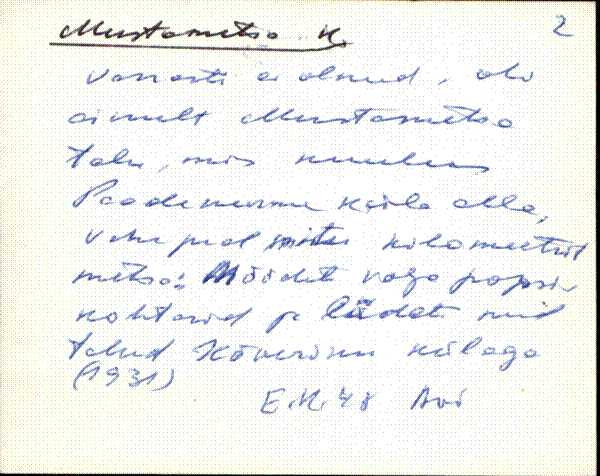 Mustametsa k. 2
Vanasti ei olnud, oli
ainult Mustametsa
talu, mis kuulus
Paadenurme küla alla,
vahe peal mitu kilomeetrit
metsa. Mõõdeti väga popsi
kohtasid ja liideti need
talud Kõveriku külaga
(1931)
E.K. 48 Avi